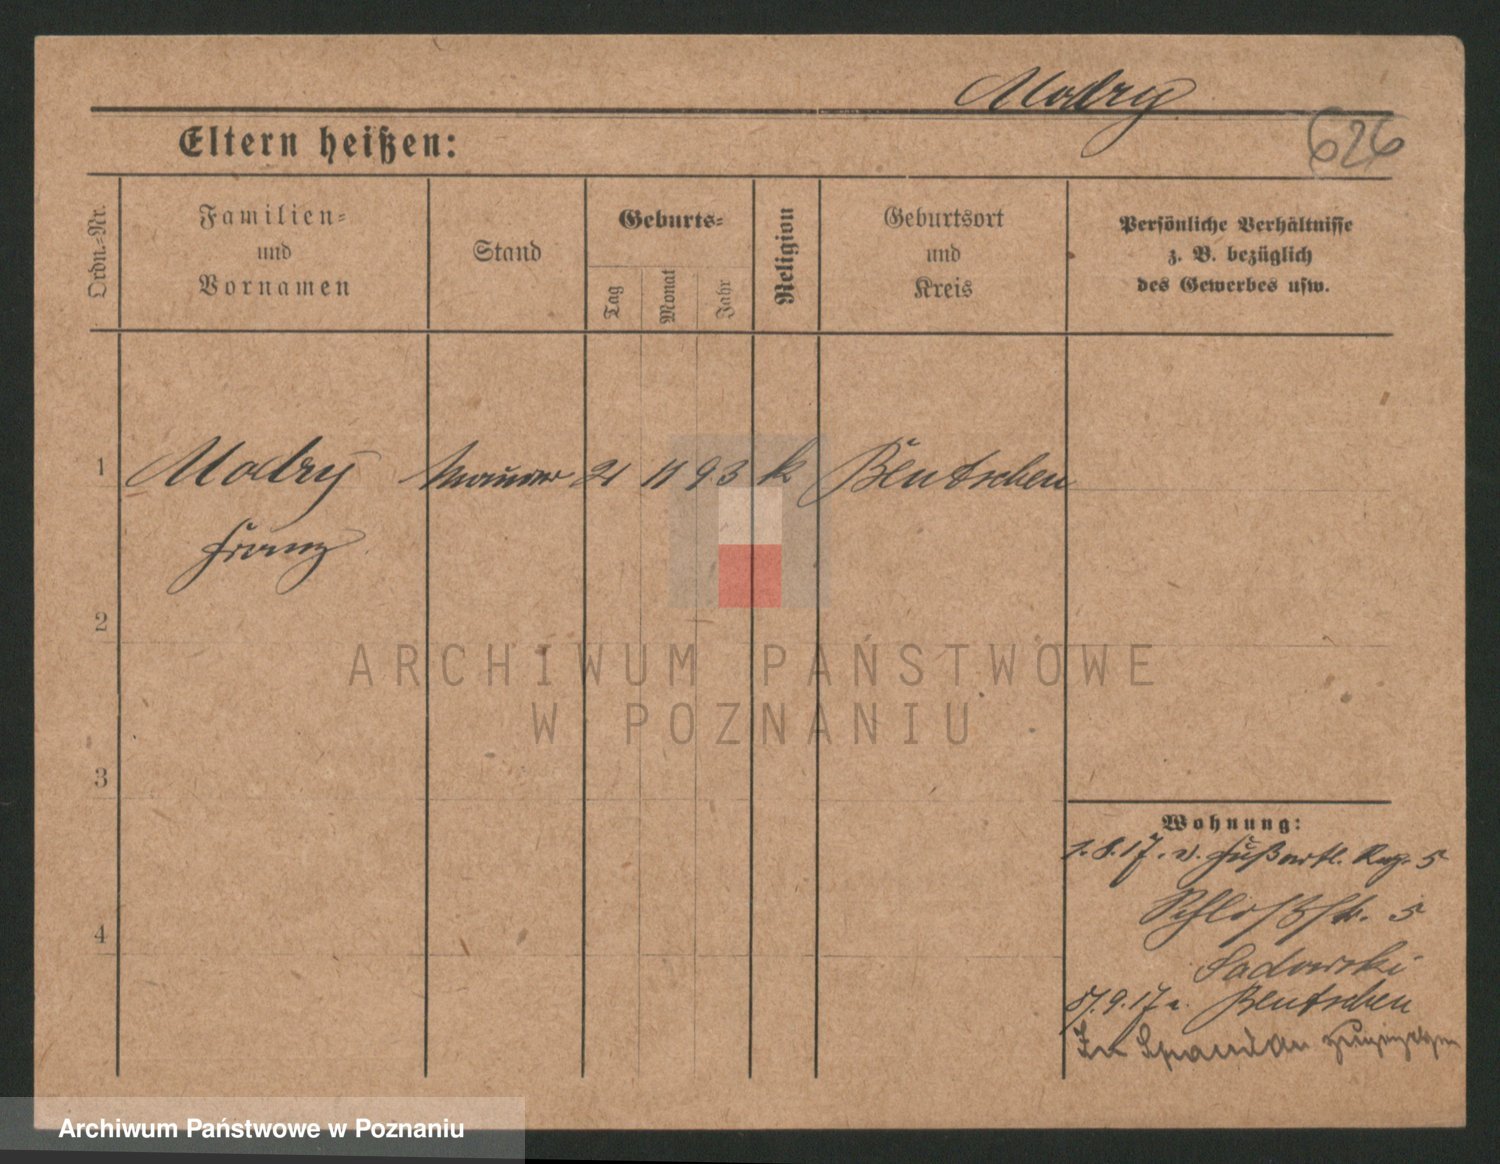 Modry
626
Eltern heißen:
Ordn.=Nr.
Familien=
und
Vornamen
Stand
Geburts=
Tag
Monat
Jahr
Religion
Geburtsort
und
Kreis
Persönliche Verhältnisse
z. B. bezüglich
des Gewerbes usw.
1 Modry Maurer 21 11 93 k Bentschen
Franz
2
3
4
Wohnung:
1.8.17. v. Fußartl. Reg. 5
Schloßstr. 5
Sadowski
9.17 Bentschen
In Spandau
ARCHIWUM PAŃSTWOWE
W POZNANIU
Archiwum Państwowe w Poznaniu